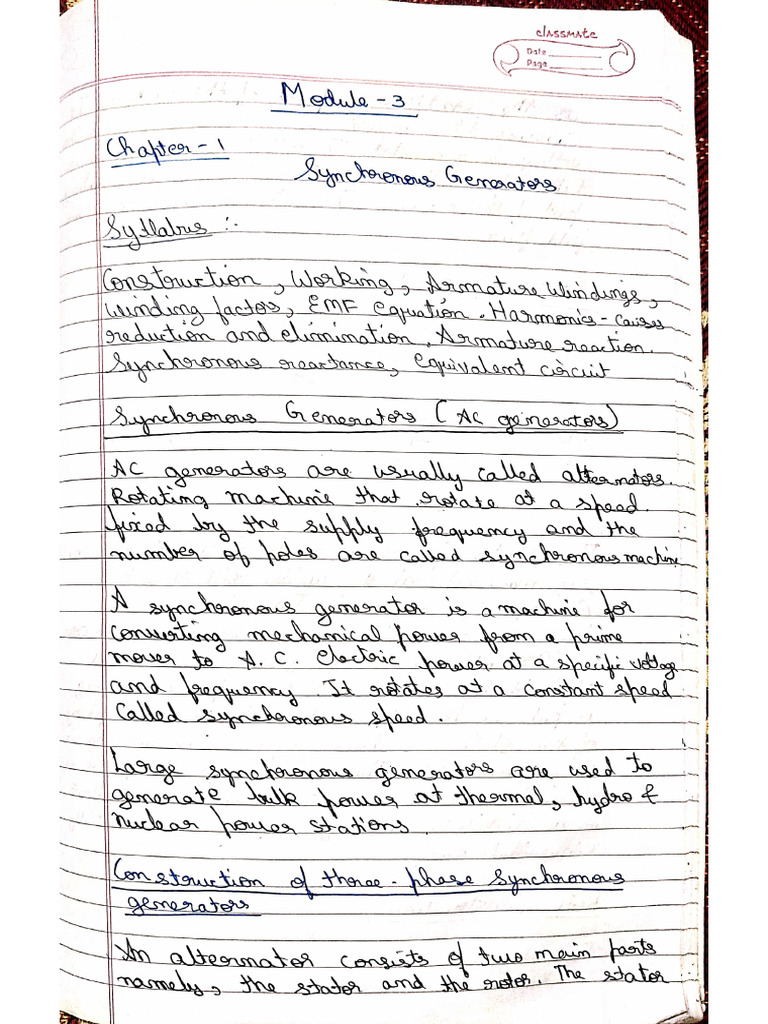 classmate
Date
Page
Module - 3
Chapter - 1
Synchronous Generators
Syllabus :-
Construction, Working, Armature Windings,
Winding factors, EMF equation. Harmonics - causes
reduction and elimination. Armature reaction.
Synchronous reactance, Equivalent circuit
Synchronous Generators (AC generators)
AC generators are usually called alternators.
Rotating machine that rotate at a speed
fixed by the supply frequency and the
number of poles are called synchronous machine
A synchronous generator is a machine for
converting mechanical power from a prime
mover to A.C. Electric power at a specific voltage
and frequency. It rotates at a constant speed
called synchronous speed.
Large synchronous generators are used to
generate bulk power at thermal, hydro &
nuclear power stations.
Construction of three-phase synchronous
generators
An alternator consists of two main parts
namely, the stator and the rotor. The stator